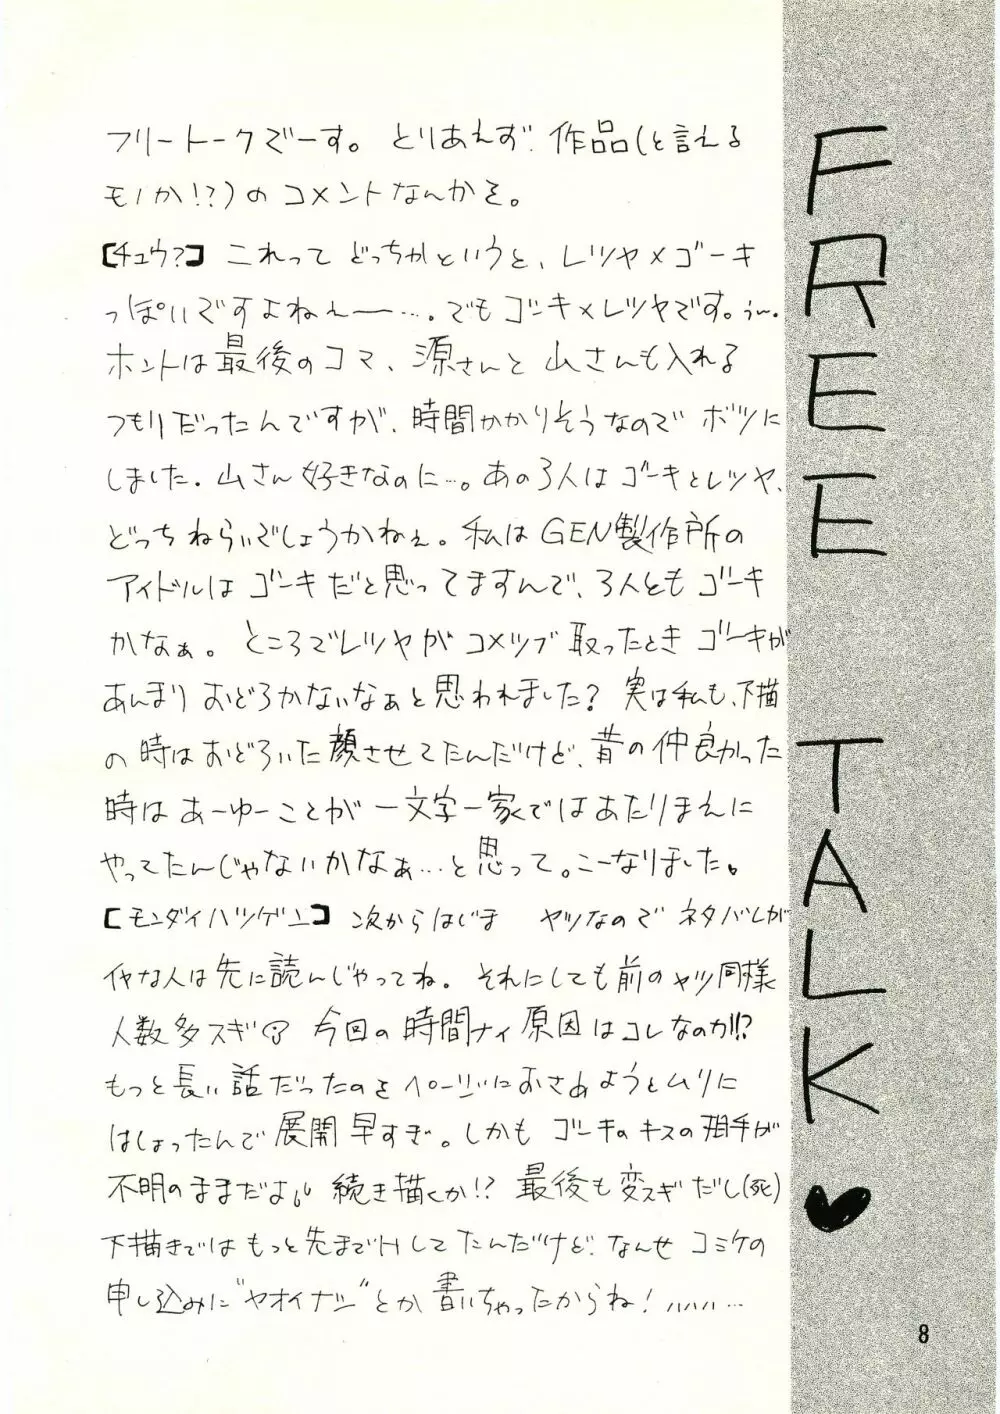 フリートークでーす。とりあえず作品(と言える
モノか!?)のコメントなんかを。
【チュウ?】これってどっちかというと、レツヤ×ゴーキ
っぽいですよねぇ―…。でもゴーキ×レツヤです。うー。
ホントは最後のコマ、源さんと山さんも入れる
つもりだったんですが、時間かかりそうなのでボツに
しました。山さん好きなのに…。あの3人はゴーキとレツヤ、
どっちねらいでしょうかねぇ。私はGEN製作所の
アイドルはゴーキだと思ってますんで、3人ともゴーキ
かなぁ。ところでレツヤがコメツブ取ったときゴーキが
あんまりおどろかないなぁと思われました?実は私も、下描
の時はおどろいた顔させてたんだけど、昔の仲良かった
時はあーゆーことが一文字一家ではあたりまえに
やってたんじゃないかなぁ…と思って。こーなりました。
【モンダイハツゲン】次からはじまるヤツなのでネタバレが
イヤな人は先に読んじゃってね。それにしても前のヤツ同様
人数多スギ 今回の時間ナイ原因はコレなのか!?
もっと長い話だったのをページにおさめようとムリに
はしょったんで展開早すぎ。しかもゴーキのキスの相手が
不明のままだよ 続き描くか!?最後も変スギだし(死)
下描きではもっと先までHしてたんだけど、なんせコミケの
申し込みに"ヤオイナシ"とか書いちゃったからね!ハハハハ…
FREE TALK♥
8